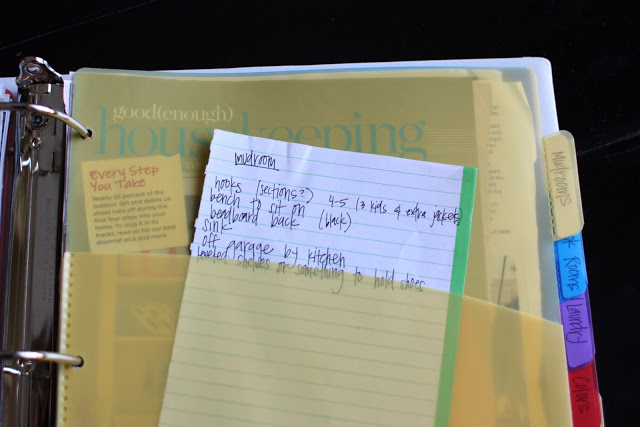 good(enough)
housekeeping
Every Step
You Take
Nearly 85 percent of the
outdoor dirt and debris on
shoes rubs off during the
first four steps into your
home. To stop it in its
tracks, read on for our best
doormat pick and more
mudroom
hooks (sections?) 4-5 (3 kids & extra jackets)
bench to sit on
beadboard back (black)
sink
off garage by kitchen
shelves or something to hold shoes
Mudrooms
Rooms
Laundry
Colors